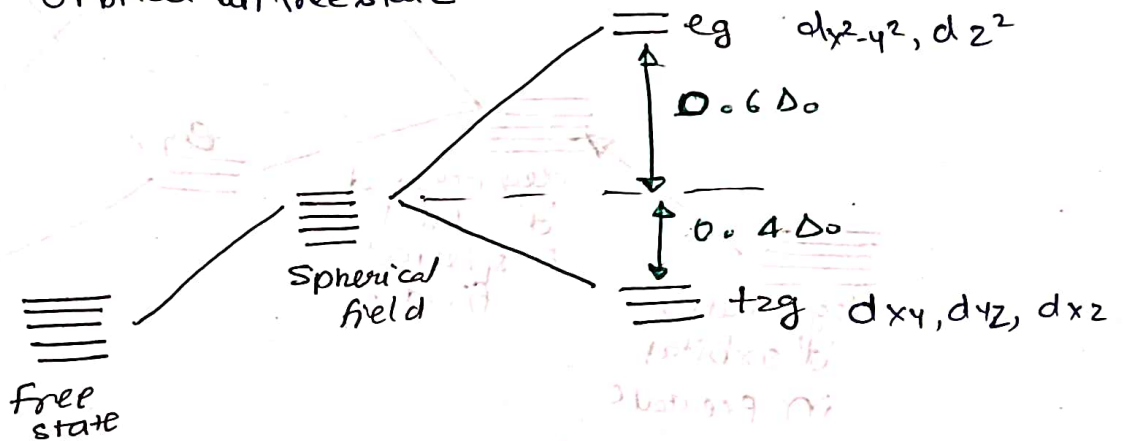 eg dx²-y², dz²
0.6 Δo
0.4 Δo
Spherical
field
t2g dxy, dyz, dxz
free
state